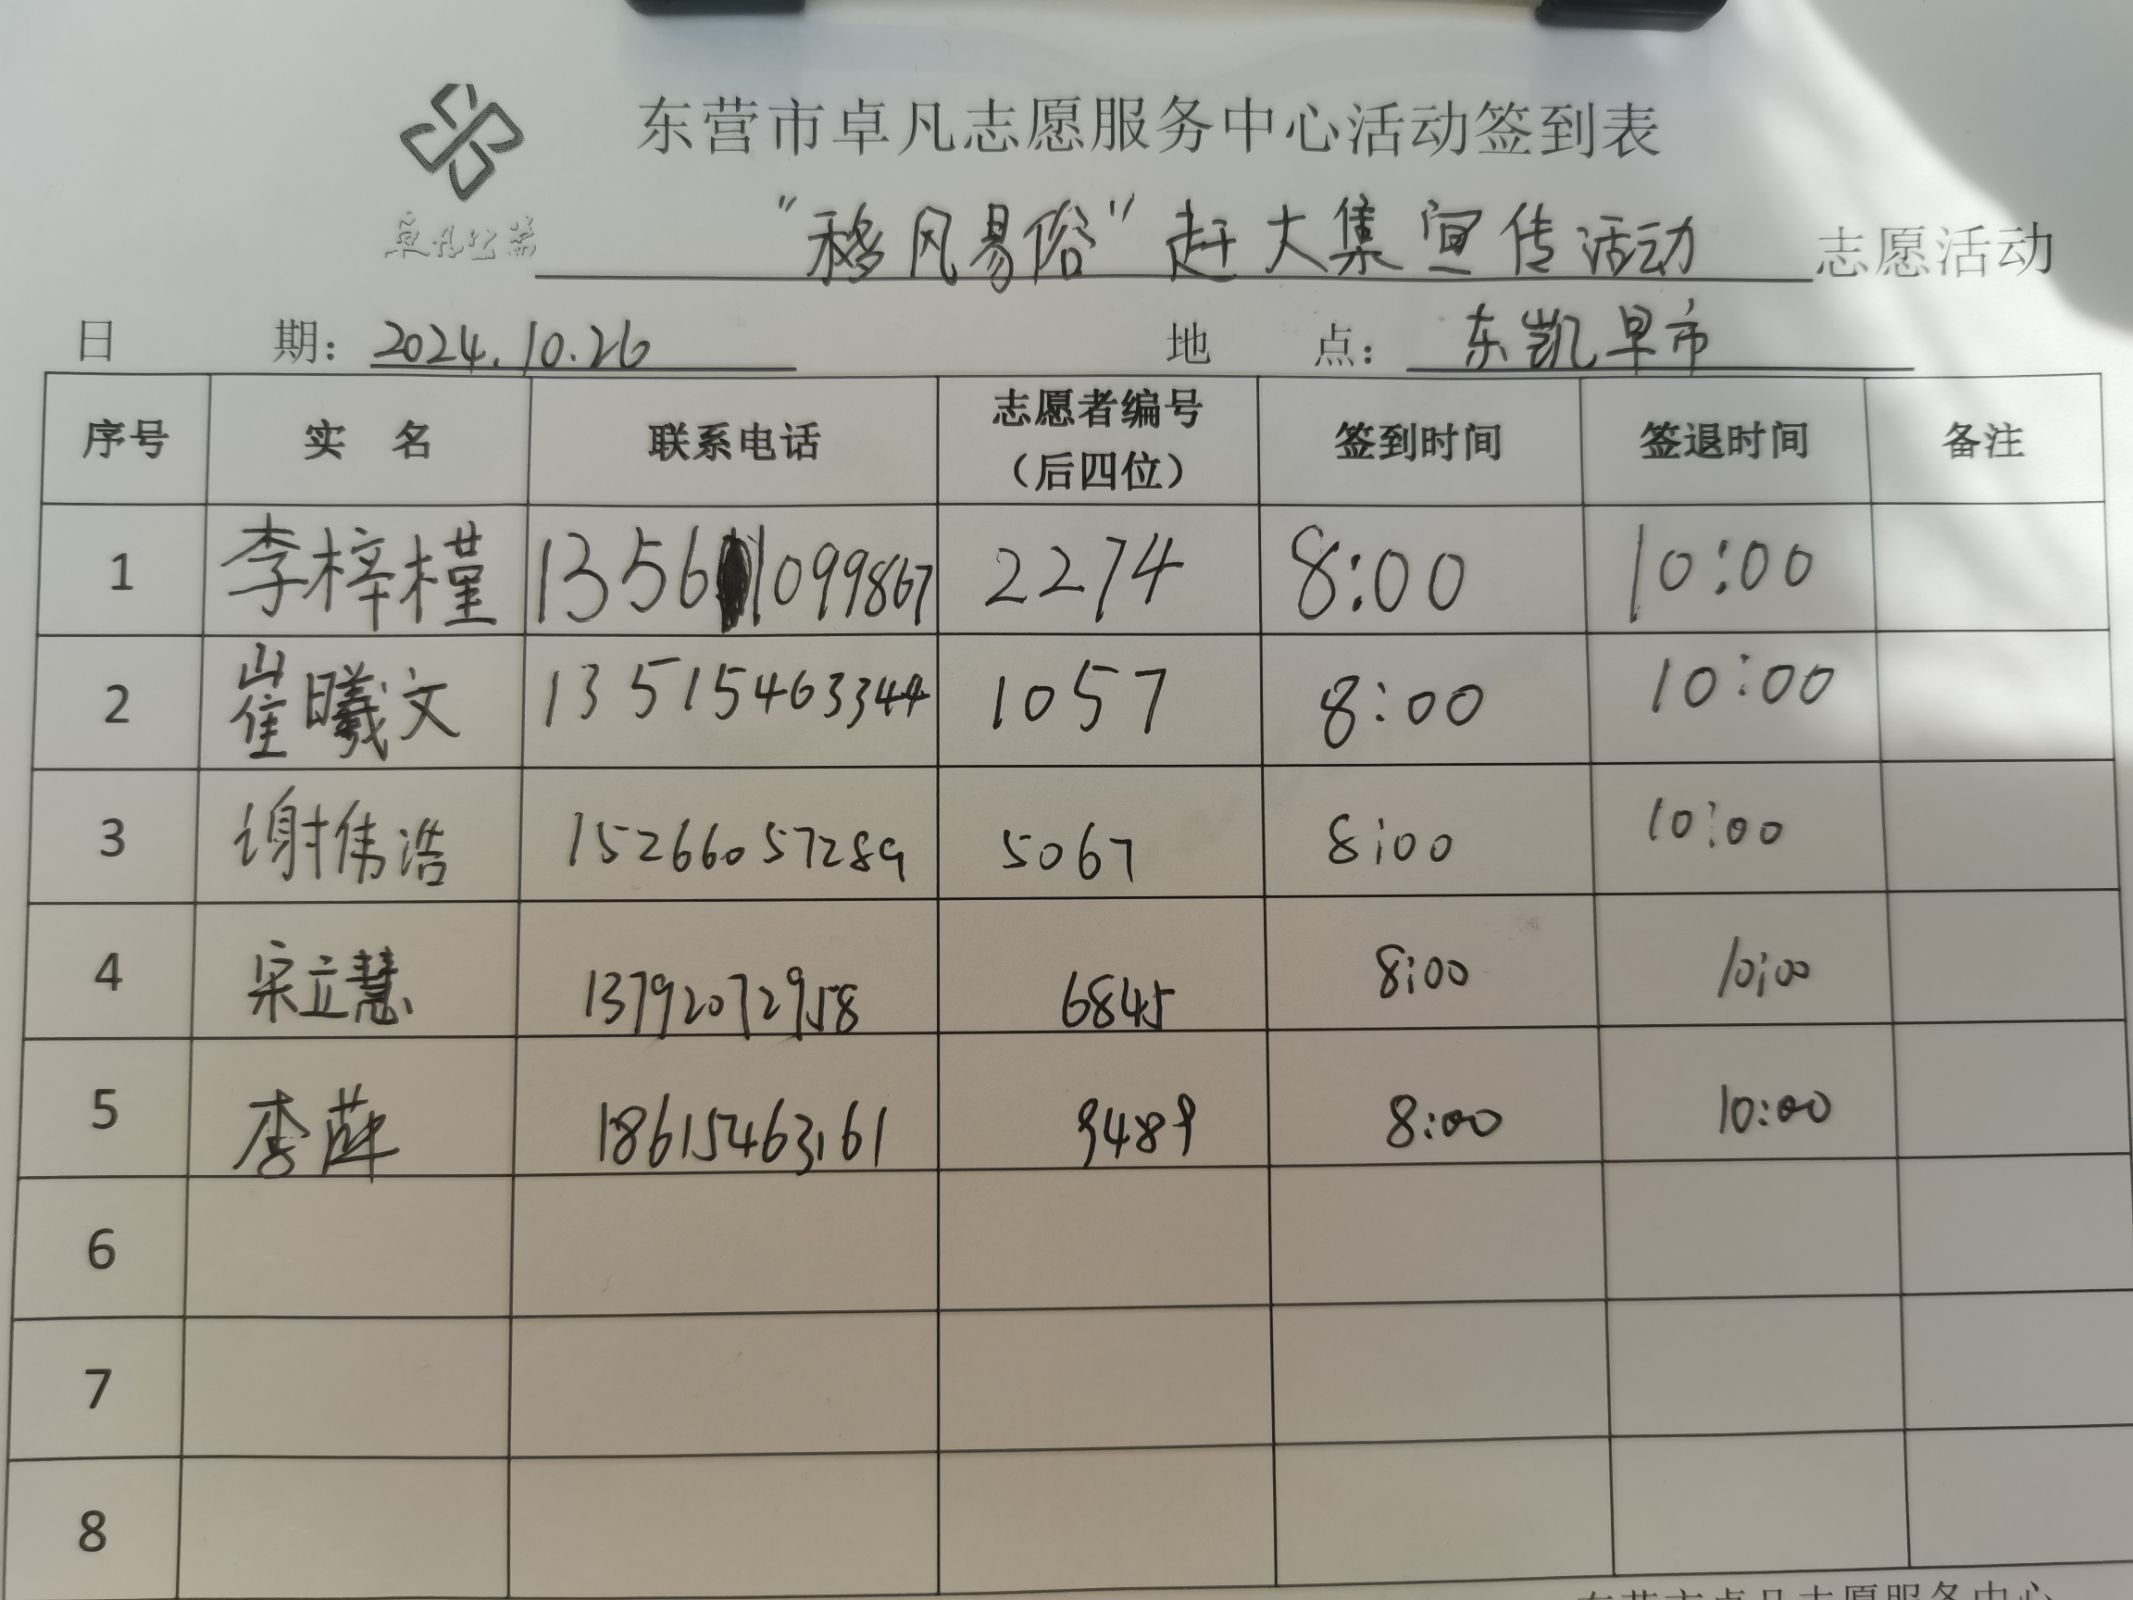 东营市卓凡志愿服务中心活动签到表
卓凡公益
“移风易俗”赶大集宣传活动 志愿活动
日 期：2024.10.26 地 点：东凯早市
序号 实 名 联系电话 志愿者编号（后四位） 签到时间 签退时间 备注
1 李梓槿 13561099867 2274 8:00 10:00
2 崔曦文 13515463344 1057 8:00 10:00
3 谢伟浩 15266057289 5067 8:00 10:00
4 宋立慧 13792072958 6845 8:00 10:00
5 李萍 18615463161 9489 8:00 10:00
6
7
8
东营市卓凡志愿服务中心